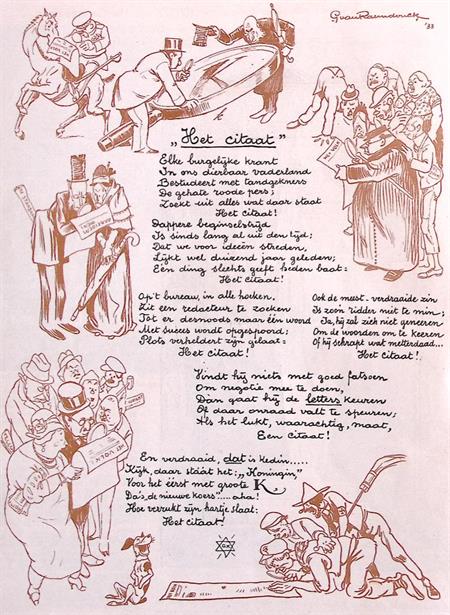 G. van Raemdonck
'33
„Het citaat"
Elke burgelijke krant
In ons dierbaar vaderland
Bestudeert met tandgekners
De gehate roode pers;
Zoekt uit alles wat daar staat
Het citaat!
Dappere beginselstrijd
Is sinds lang al uit den tijd;
Dat we voor ideeën streden,
Lijkt wel duizend jaar geleden;
Eén ding slechts geeft heden baat:
Het citaat!
Op't bureau, in alle hoeken,
Zit een redacteur te zoeken
Tot er desnoods maar één woord
Met succes wordt opgespoord;
Plots verheldert zijn gelaat =
Het citaat!
Ook de meest-verdraaide zin
Is zoo'n ridder niet te min;
Ja, hij zal zich niet geneeren
Om de woorden om te keeren
Of hij schrapt wat metterdaad...
Het citaat!
Vindt hij niets met goed fatsoen
Om negotie mee te doen,
Dan gaat hij de letters keuren
Of daar onraad valt te speuren;
Als het lukt, waarachtig, maat,
Een citaat!
En verdraaid, dat is kedin.....
Kijk, daar stáát het: „Koningin,"
Voor het éérst met groote K
Da's „de nieuwe koers"..... aha!
Hoe verrukt zijn hartje slaat:
Het citaat!
HET VOLK